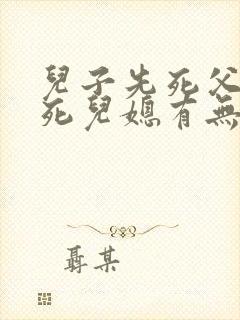 兒子先死父
死兒媳有無
聶某